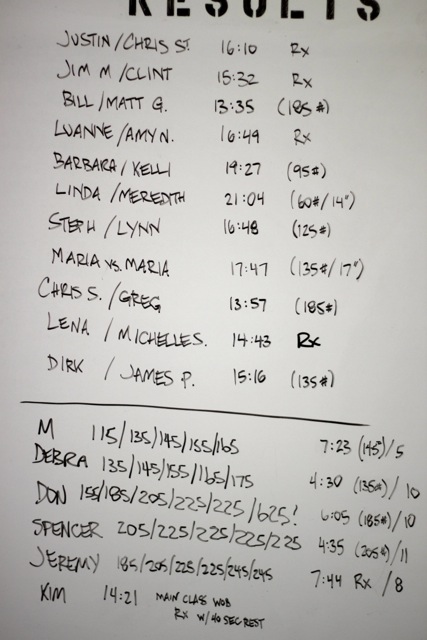 RESULTS
JUSTIN/CHRIS ST. 16:10 Rx
JIM M/CLINT 15:32 Rx
BILL/MATT G. 13:35 (185#)
LUANNE/AMY N. 16:49 Rx
BARBARA/KELLI 19:27 (95#)
LINDA/MEREDITH 21:04 (60#/14")
STEPH/LYNN 16:48 (125#)
MARIA VS. MARIA 17:47 (135#/17")
CHRIS S./GREG 13:57 (185#)
LENA/MICHELLE S. 14:43 Rx
DIRK/JAMES P. 15:16 (135#)
M 115/135/145/155/165 7:23 (145#)/5
DEBRA 135/145/155/165/175 4:30 (135#)/10
DON 155/185/205/225/225/625! 6:05 (185#)/10
SPENCER 205/225/225/225/225 4:35 (205#)/11
JEREMY 185/205/225/225/245/245 7:44 Rx/8
KIM 14:21 MAIN CLASS WOD
Rx W/40 SEC REST